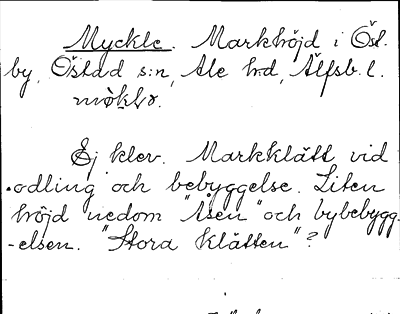 Myckle. Markhöjd i Öst.
by, Östad s:n, Ale h:d, Älfsb. l.
møklə.
Ej klev. Markklätt vid
odling och bebyggelse. Liten
höjd nedom "Åsen" och bybebygg-
-elsen. "Stora Klätten"?